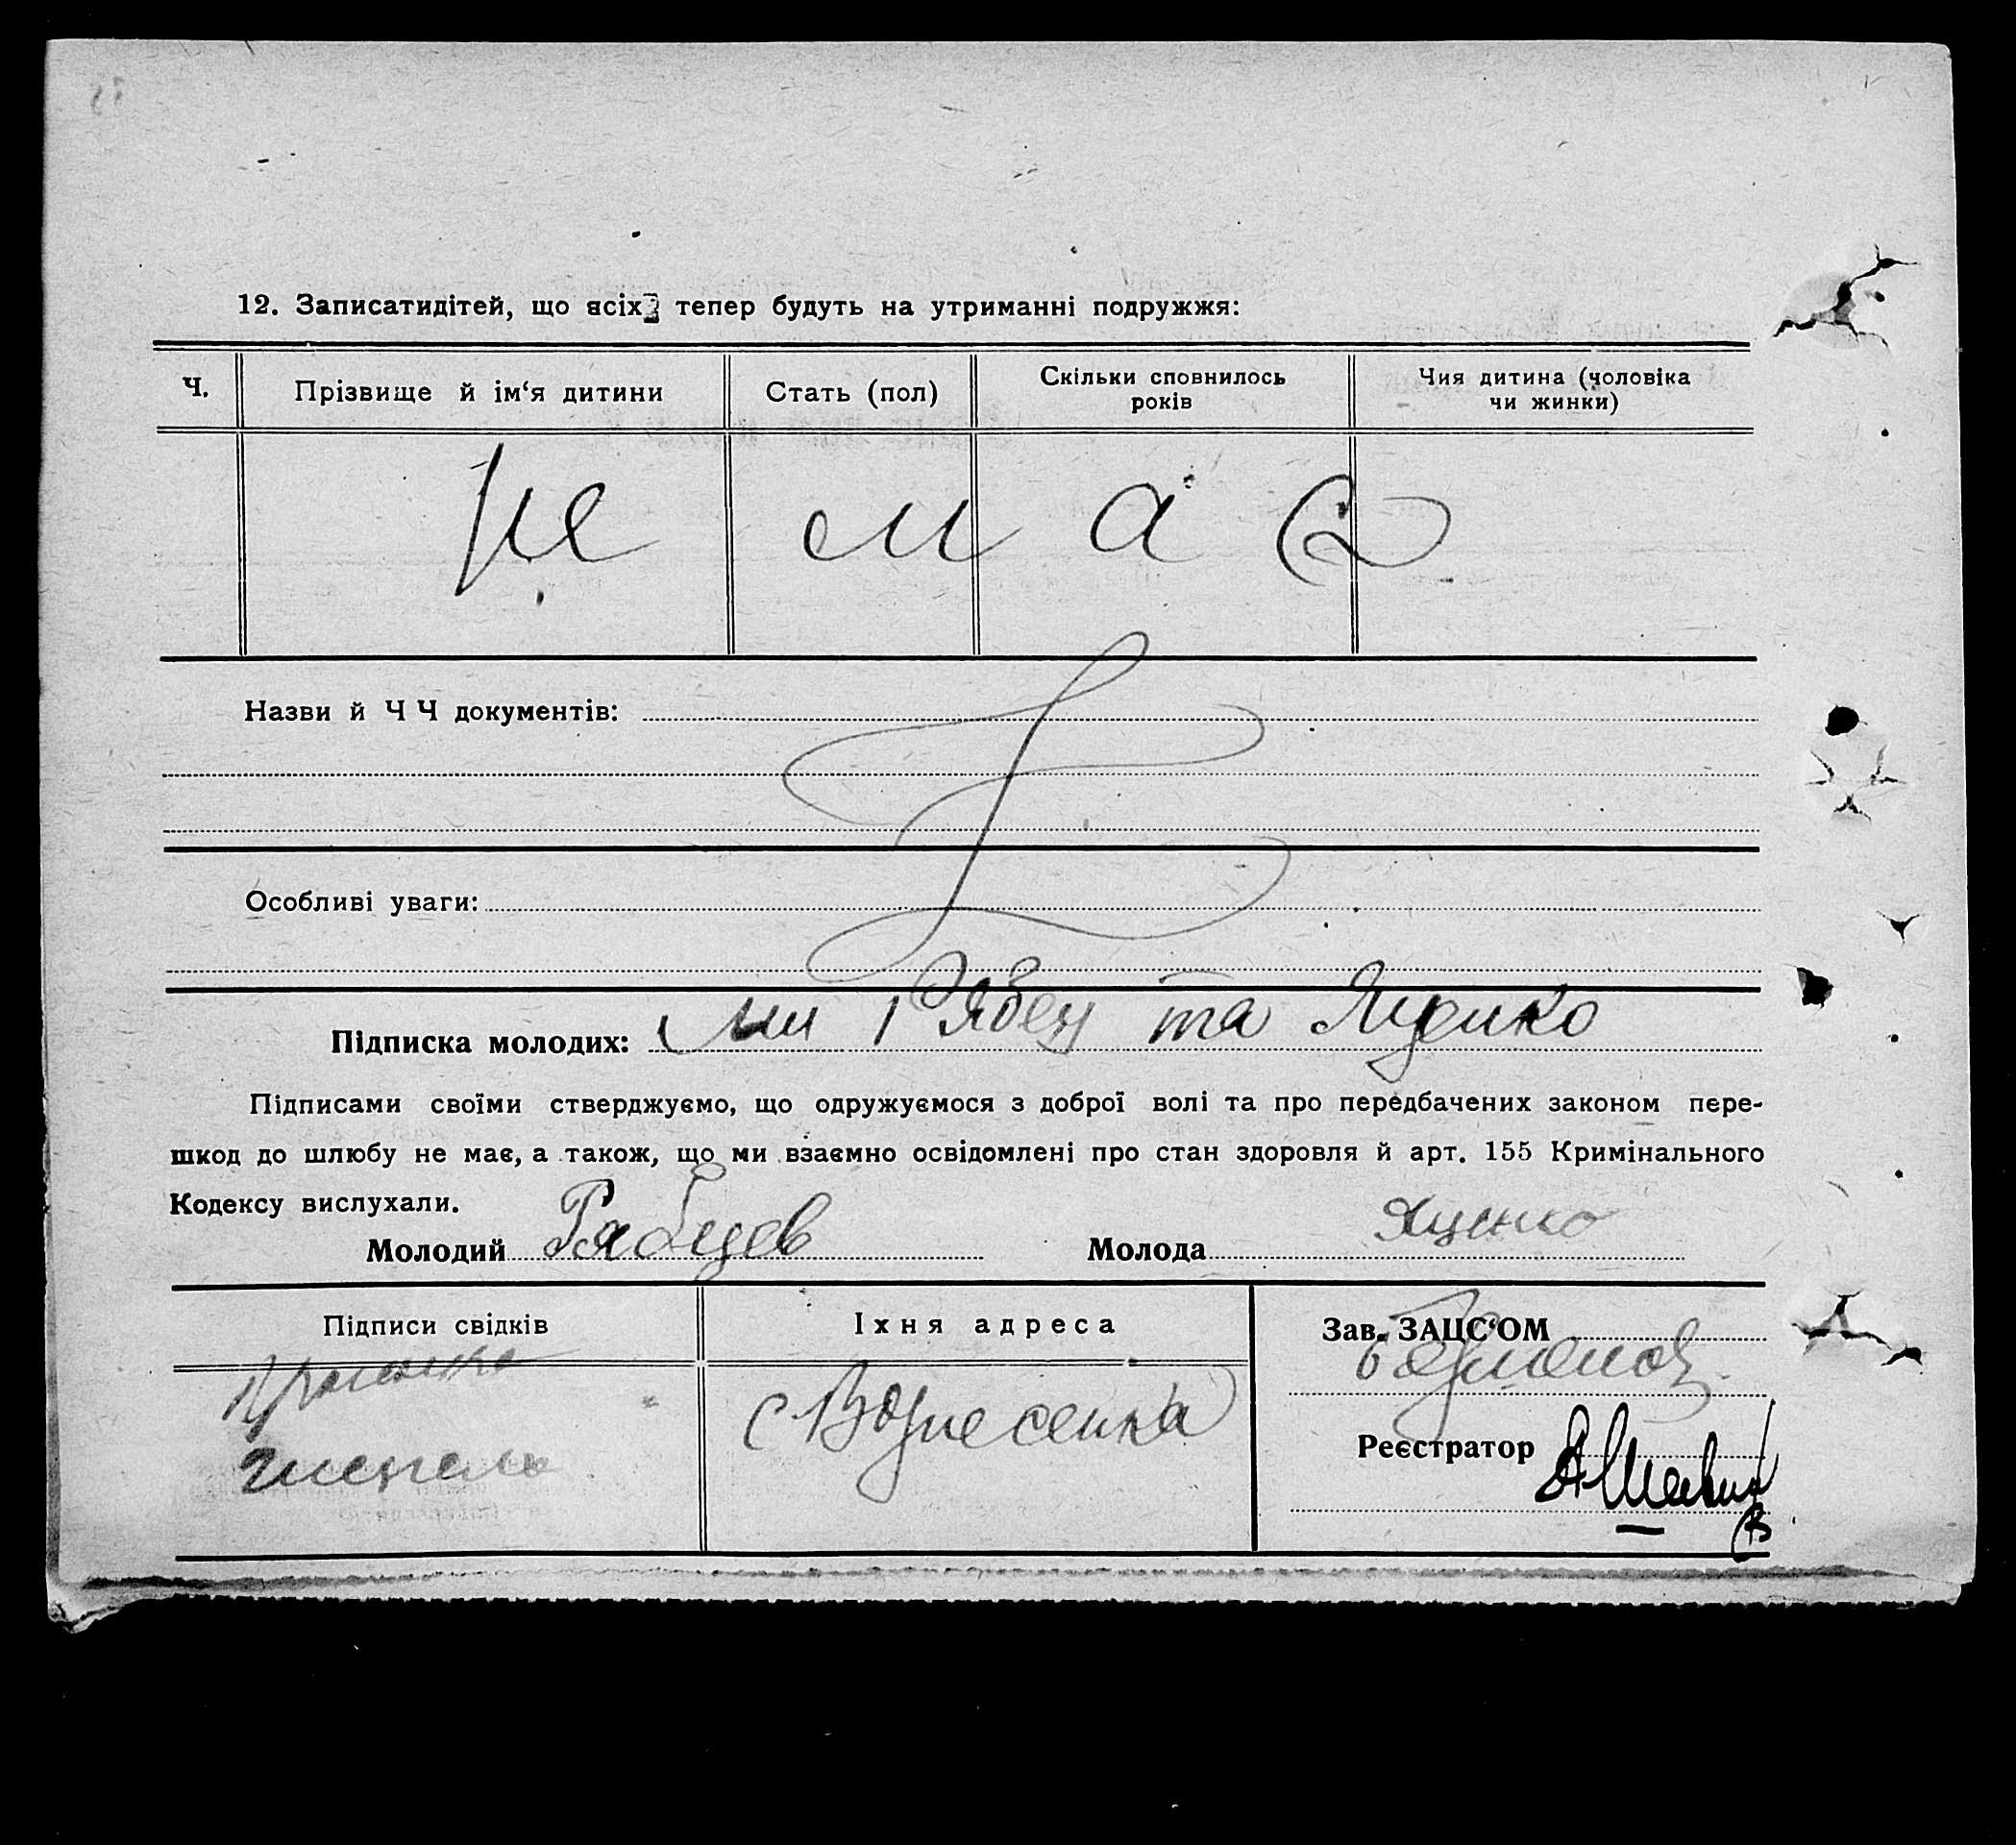 12. Записатидітей, що всіх тепер будуть на утриманні подружжя:
Ч. Прізвище й ім‘я дитини Стать (пол) Скільки сповнилось років Чия дитина (чоловіка чи жинки)
не має
Назви й Ч Ч документів:
Особливі уваги:
Підписка молодих: ми Рябец та Яценко
Підписами своїми стверджуємо, що одружуємося з доброї волі та про передбачених законом пере-
шкод до шлюбу не має, а також, що ми взаємно освідомлені про стан здоровля й арт. 155 Кримінального
Кодексу вислухали.
Молодий Рябцев Молода Яценко
Підписи свідків Іхня адреса Зав. ЗАЦС‘ОМ
с Вознесенка
Реєстратор